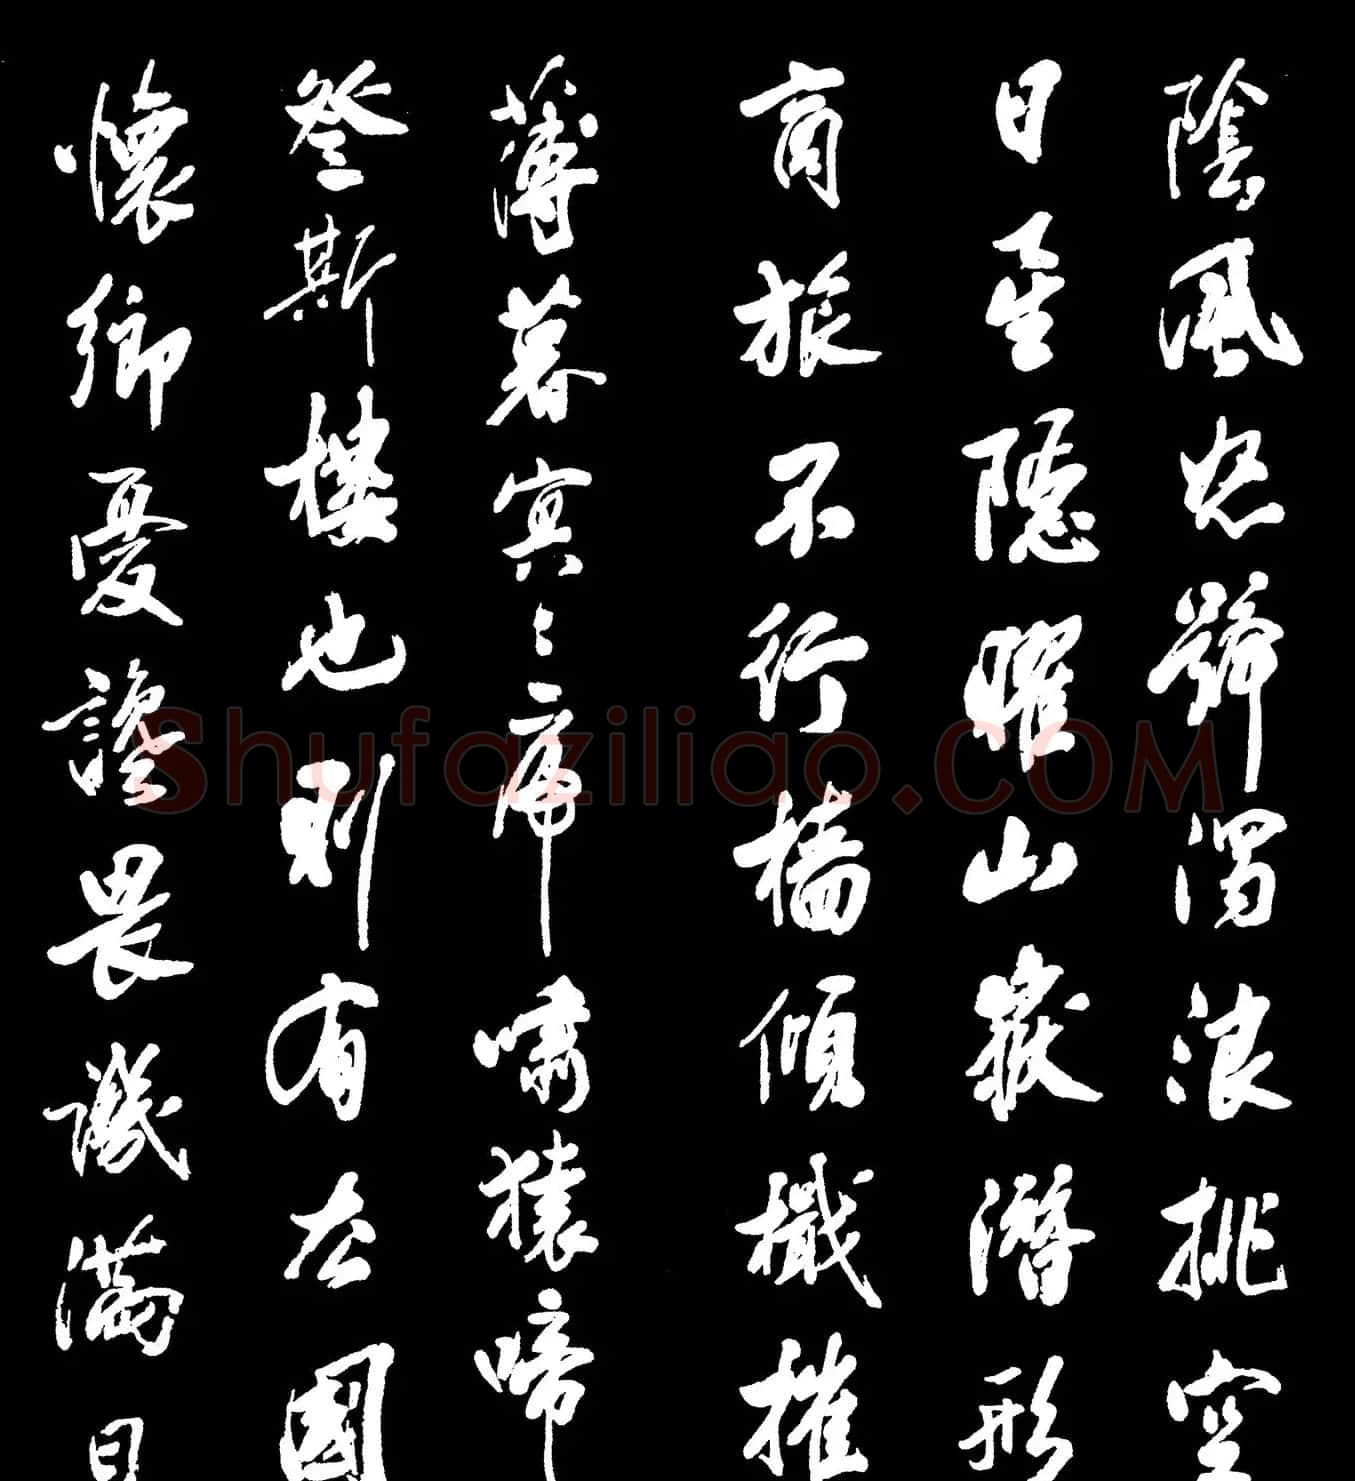 陰風怒號濁浪排空
日星隱曜山嶽潛形
商旅不行檣傾檝摧
薄暮冥〻虎嘯猿啼
登斯樓也則有去國
懷鄉憂讒畏譏滿目
Shufaziliao.COM